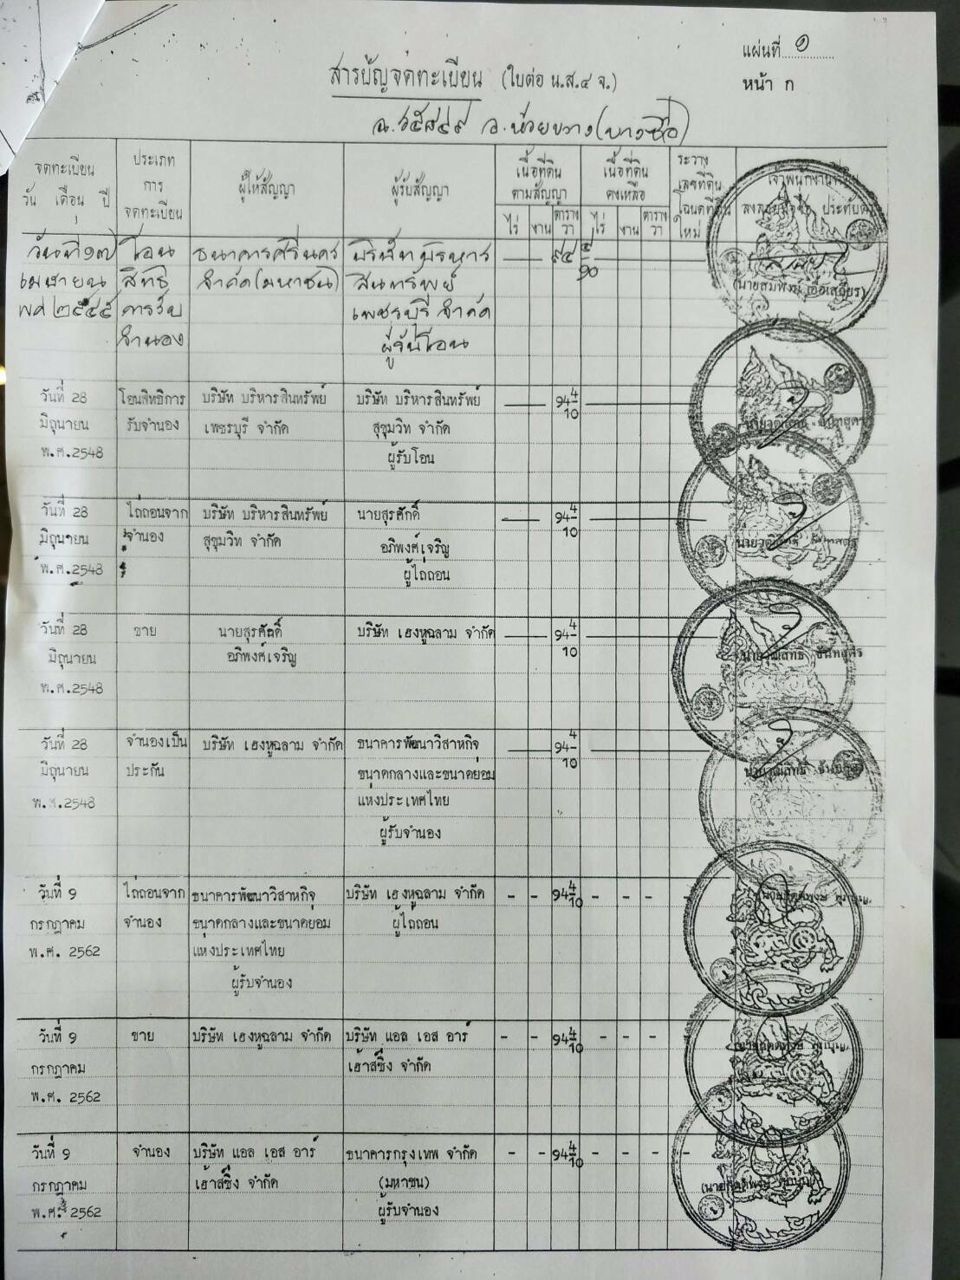 แผ่นที่ ๑
หน้า ก
สารบัญจดทะเบียน (ใบต่อ น.ส.๔ จ.)
อ.ห้วยขวาง(บางซื่อ)
จดทะเบียน วัน เดือน ปี
ประเภทการจดทะเบียน
ผู้ให้สัญญา
ผู้รับสัญญา
เนื้อที่ดินตามสัญญา
ไร่ งาน ตารางวา
เนื้อที่ดินคงเหลือ
ไร่ งาน ตารางวา
ระวาง เลขที่ดิน โฉนดที่ดินใหม่
วันที่๑๗ โอน ธนาคารศรีนคร บริษัทบริหาร — ๙๔ ๕/๑๐
เมษายน สิทธิ จำกัด(มหาชน) สินทรัพย์
พศ ๒๕๔๕ การรับ เพชรบุรี จำกัด
จำนอง ผู้รับโอน
วันที่ 28 โอนสิทธิการ บริษัท บริหารสินทรัพย์ บริษัท บริหารสินทรัพย์ 94 4/10
มิถุนายน รับจำนอง เพชรบุรี จำกัด สุขุมวิท จำกัด
พ.ศ.2548 ผู้รับโอน
วันที่ 28 ไถ่ถอนจาก บริษัท บริหารสินทรัพย์ นายสุรศักดิ์ 94 4/10
มิถุนายน จำนอง สุขุมวิท จำกัด อภิพงศ์เจริญ
พ.ศ.2548 ผู้ไถ่ถอน
วันที่ 28 ขาย นายสุรศักดิ์ บริษัท เฮงหูฉลาม จำกัด 94 4/10
มิถุนายน อภิพงศ์เจริญ
พ.ศ.2548
วันที่ 28 จำนองเป็น บริษัท เฮงหูฉลาม จำกัด ธนาคารพัฒนาวิสาหกิจ 94 4/10
มิถุนายน ประกัน ขนาดกลางและขนาดย่อม
พ.ศ.2548 แห่งประเทศไทย
ผู้รับจำนอง
วันที่ 9 ไถ่ถอนจาก ธนาคารพัฒนาวิสาหกิจ บริษัท เฮงหูฉลาม จำกัด - - 94 4/10 - - - -
กรกฎาคม จำนอง ขนาดกลางและขนาดย่อม ผู้ไถ่ถอน
พ.ศ. 2562 แห่งประเทศไทย
ผู้รับจำนอง
วันที่ 9 ขาย บริษัท เฮงหูฉลาม จำกัด บริษัท แอล เอส อาร์ - - 94 4/10 - - - -
กรกฎาคม เฮ้าส์ซิ่ง จำกัด
พ.ศ. 2562
วันที่ 9 จำนอง บริษัท แอล เอส อาร์ ธนาคารกรุงเทพ จำกัด - - 94 4/10 - - - -
กรกฎาคม เฮ้าส์ซิ่ง จำกัด (มหาชน)
พ.ศ. 2562 ผู้รับจำนอง